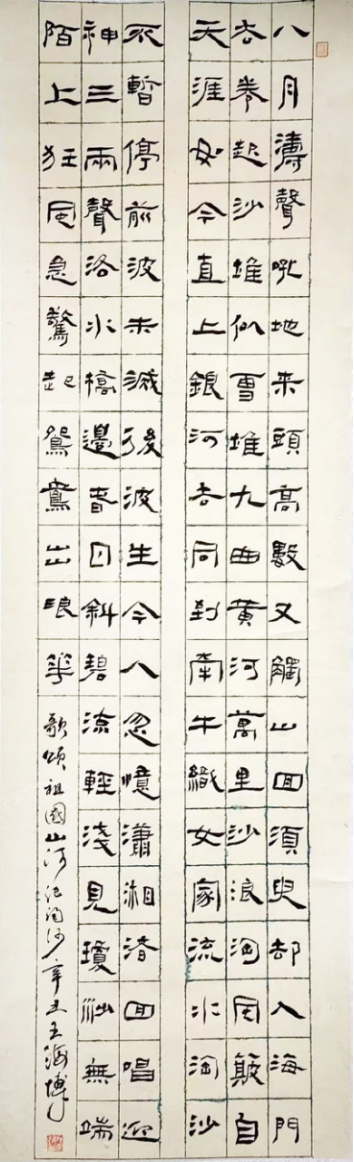 八月濤聲吼地来頭高數丈觸山回須臾却入海門
去卷起沙堆似雪堆九曲黃河萬里沙浪淘風簸自
天涯如今直上銀河去同到牽牛織女家流水淘沙
不暫停前波未滅後波生令人忽憶瀟湘渚回唱迎
神三兩聲洛水橋邊春日斜碧流輕淺見瓊沙無端
陌上狂風急驚起鴛鴦出浪花歌頌祖國山河浪淘沙辛丑王海博